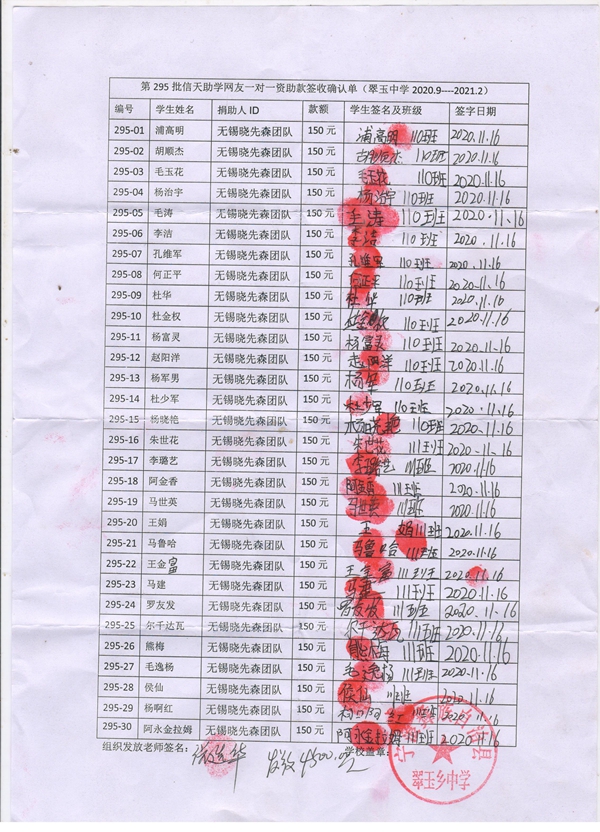 第 295 批信天助学网友一对一资助款签收确认单（翠玉中学 2020.9----2021.2）
编号 学生姓名 捐助人 ID 款额 学生签名及班级 签字日期
295-01 浦高明 无锡晓先森团队 150 元 浦高明 110班 2020.11.16
295-02 胡顺杰 无锡晓先森团队 150 元 胡顺杰 110班 2020.11.16
295-03 毛玉花 无锡晓先森团队 150 元 毛玉花 110班 2020.11.16
295-04 杨治宇 无锡晓先森团队 150 元 杨治宇 110班 2020.11.16
295-05 毛涛 无锡晓先森团队 150 元 毛涛 110班 2020.11.16
295-06 李洁 无锡晓先森团队 150 元 李洁 110班 2020.11.16
295-07 孔维军 无锡晓先森团队 150 元 孔维军 110班 2020.11.16
295-08 何正平 无锡晓先森团队 150 元 何正平 110班 2020.11.16
295-09 杜华 无锡晓先森团队 150 元 杜华 110班 2020.11.16
295-10 杜金权 无锡晓先森团队 150 元 杜金权 110班 2020.11.16
295-11 杨富灵 无锡晓先森团队 150 元 杨富灵 110班 2020.11.16
295-12 赵阳洋 无锡晓先森团队 150 元 赵阳洋 110班 2020.11.16
295-13 杨军男 无锡晓先森团队 150 元 杨军 110班 2020.11.16
295-14 杜少军 无锡晓先森团队 150 元 杜少军 110班 2020.11.16
295-15 杨晓艳 无锡晓先森团队 150 元 杨晓艳 110班 2020.11.16
295-16 朱世花 无锡晓先森团队 150 元 朱世花 111班 2020.11.16
295-17 李璐艺 无锡晓先森团队 150 元 李璐艺 111班 2020.11.16
295-18 阿金香 无锡晓先森团队 150 元 阿金香 111班 2020.11.16
295-19 马世英 无锡晓先森团队 150 元 马世英 111班 2020.11.16
295-20 王娟 无锡晓先森团队 150 元 王娟 111班 2020.11.16
295-21 马鲁哈 无锡晓先森团队 150 元 马鲁哈 111班 2020.11.16
295-22 王金富 无锡晓先森团队 150 元 王金富 111班 2020.11.16
295-23 马建 无锡晓先森团队 150 元 马建 111班 2020.11.16
295-24 罗友发 无锡晓先森团队 150 元 罗友发 111班 2020.11.16
295-25 尔千达瓦 无锡晓先森团队 150 元 尔千达瓦 111班 2020.11.16
295-26 熊梅 无锡晓先森团队 150 元 熊梅 111班 2020.11.16
295-27 毛逸杨 无锡晓先森团队 150 元 毛逸杨 111班 2020.11.16
295-28 侯仙 无锡晓先森团队 150 元 侯仙 111班 2020.11.16
295-29 杨啊红 无锡晓先森团队 150 元 111班 2020.11.16
295-30 阿永金拉姆 无锡晓先森团队 150 元 阿永金拉姆 111班 2020.11.16
组织发放老师签名： 发放4500.元 学校盖章：
翠玉乡中学